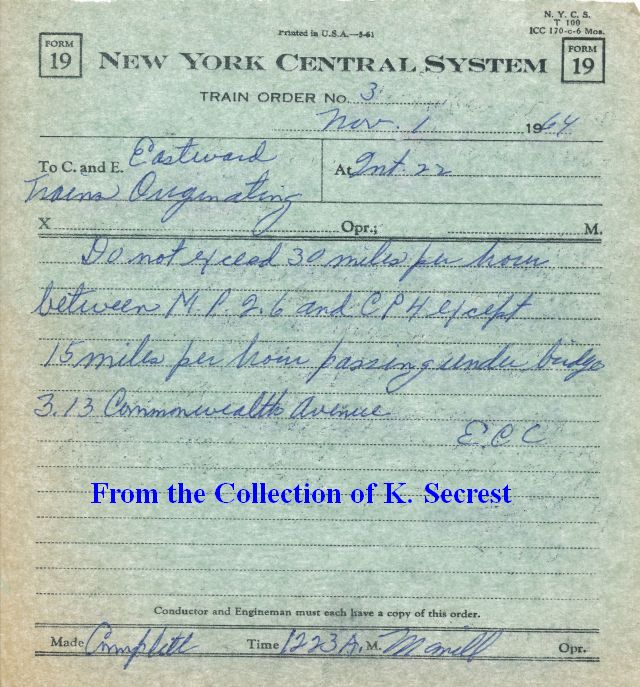 N. Y. C. S.
T 100
ICC 170-c-6 Mos.
Printed in U.S.A.—5-61
FORM
19
NEW YORK CENTRAL SYSTEM
FORM
19
TRAIN ORDER No. 3
Nov. 1 1964
To C. and E. Eastward At Int. 22
Trains Originating
X Opr.; M.
Do not exceed 30 miles per hour
between M.P. 2.6 and CP4 except
15 miles per hour passing under bridge
3.13 Commonwealth Avenue
From the Collection of K. Secrest
Conductor and Engineman must each have a copy of this order.
Made Complete Time 1223 A. M. Opr.